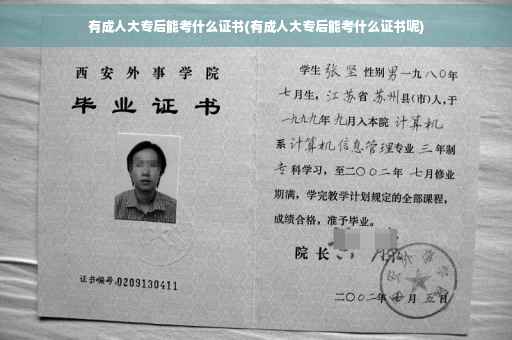 有成人大专后能考什么证书(有成人大专后能考什么证书呢)
西安外事学院
毕业证书
证书编号:0209130411
学生 张坚 性别 男 一九八〇年
七月生, 江苏省 苏州县(市)人,于
一九九九年 九月入本院 计算机
系 计算机信息管理专业 三 年制
专科学习, 至二〇〇二年 七月修业
期满, 学完教学计划规定的全部课程,
成绩合格, 准予毕业。
院长
二〇〇二年 月 五日